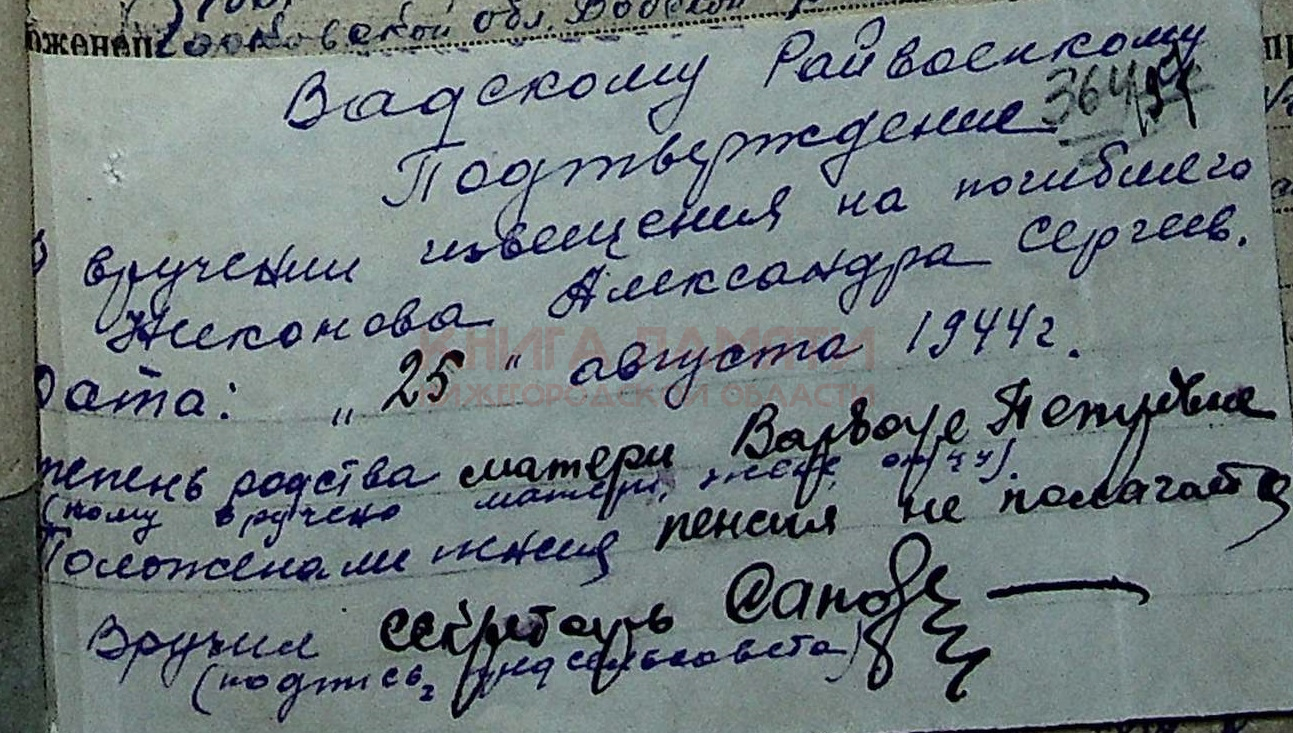 Горьковской обл. Вадский
Вадскому Райвоенкому
364
Подтверждение
О вручении извещения на погибшего
Никонова Александра Сергеев.
Дата: „25" августа 1944г.
тепень родства матери Варваре Петровне
(кому вручено матери, жене, отцу).
Положена ли пенсия пенсия не полагается
Вручил секретарь
(подпись, пред сельсовета)
КНИГА ПАМЯТИ
НИЖЕГОРОДСКОЙ ОБЛАСТИ